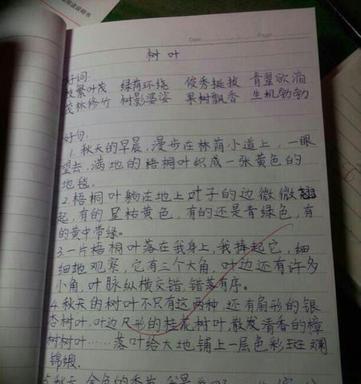 树叶
好词:
枝繁叶茂 绿荫环绕 俊秀挺拔 青翠欲滴
茂林修竹 树影婆娑 果树飘香 生机勃勃
好句:
1.秋天的早晨,漫步在林荫小道上,一眼
望去,满地的梧桐叶织成一张黄色的
地毯。
2.梧桐叶躺在地上叶子的边微微翘
起,有的呈枯黄色,有的还是青绿色,有
的黄中带绿。
3.一片梧桐叶落在我身上,我捧起它,细
细地观察,它有三个大角,叶边还有许多
小角,叶脉纵横交错,错落有序。
4.秋天的树叶不只有这两种,还有扇形的银
杏树叶,叶边尺形的桂花树叶,散发清香的樟
树树叶……落叶给大地铺上一层色彩斑斓
锦缎。